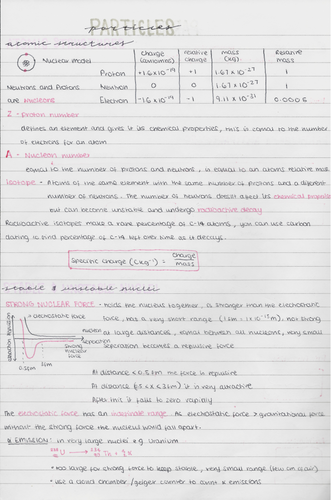 PARTICLES
particles
atomic structures
charge (coulombs) relative charge mass (kg) Relative mass
Nuclear model
Proton +1.6x10⁻¹⁹ +1 1.67x10⁻²⁷ 1
Neutrons and Protons Neutron 0 0 1.67x10⁻²⁷ 1
are nucleons Electron -1.6x10⁻¹⁹ -1 9.11x10⁻³¹ 0.0005
Z - proton number
defines an element and gives it its chemical properties, this is equal to the number
of electrons for an atom
A - Nucleon number
equal to the number of protons and neutrons, is equal to an atoms relative mass
Isotope - Atoms of the same element with the same number of protons and a different
number of neutrons. The number of neutrons doesnt affect its chemical properties
but can become unstable and undergo radioactive decay
Radioactive isotopes make a rare percentage of C-14 atoms, you can use carbon
dating to find percentage of C-14 left over time as it decays.
Specific charge (Ckg⁻¹) = charge / mass
stable & unstable nuclei
STRONG NUCLEAR FORCE - holds the nucleus together, is stronger than the electrostatic
force, has a very short range, not strong
at large distances, equal between all nucleons, very small
separation becomes a repulsive force
electrostatic force
Repulsion
attraction
nucleon separation
strong nuclear force
0.5fm
3fm
At distance <0.5fm the force is repulsive
At distance (0.5<x<3fm) it is very attractive
After this it falls to zero rapidly
The electrostatic force has an indefinate range. As electrostatic force > gravitational force
without the strong force the nucleus would fall apart.
α EMISSION: in very large nuclei e.g. Uranium
U → Th + α
• too large for strong force to keep stable, very small range (few cm in air)
• use a cloud chamber / geiger counter to count α emissions